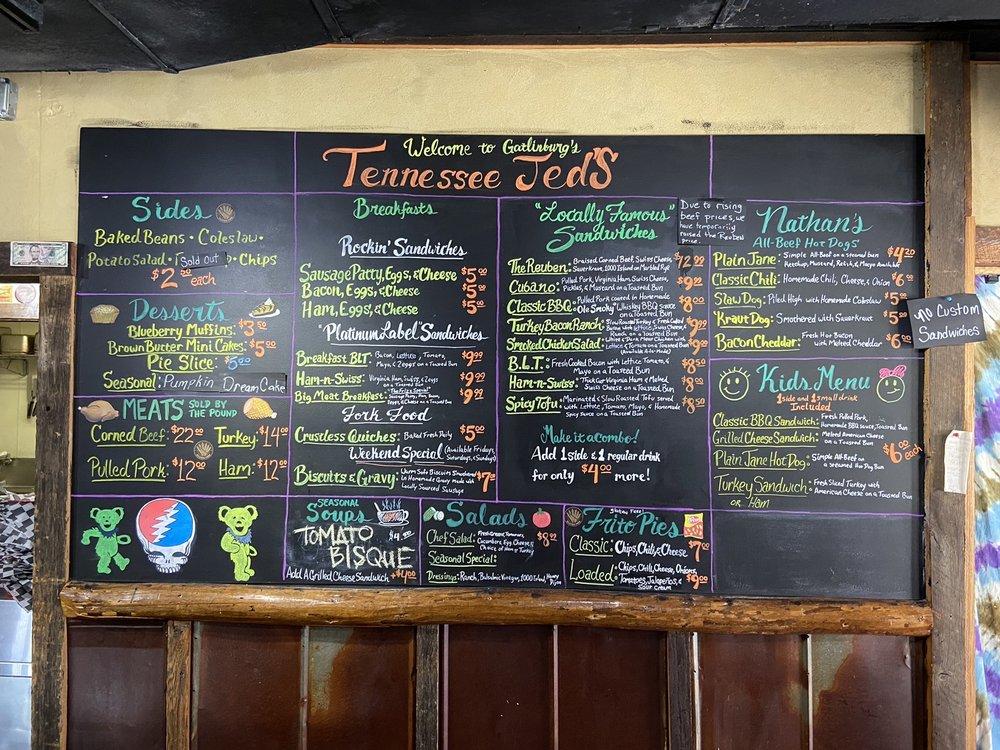 Welcome to Gatlinburg's
Tennessee Jed's
Sides
Baked Beans • Coleslaw •
Potato Salad • Sold out • Chips
$2.00 each
Desserts
Blueberry Muffins: $3.50
Brown Butter Mini Cakes: $5.00
Pie Slice: $5.00
Seasonal: Pumpkin Dream Cake
MEATS SOLD BY
THE POUND
Corned Beef: $22.00 Turkey: $14.00
Pulled Pork: $12.00 Ham: $12.00
Breakfasts
Rockin' Sandwiches
Sausage Patty, Eggs, & Cheese $5.00
Bacon, Eggs, & Cheese $5.00
Ham, Eggs, & Cheese $5.00
"Platinum Label" Sandwiches
Breakfast BLT: Bacon, Lettuce, Tomato, $9.99
Mayo, & 2 eggs on a Toasted Bun
Ham-n-Swiss: Virginia Ham, Swiss, & 2 eggs $9.99
on a Toasted Bun
Big Meat Breakfast: $9.99
Fork Food
Crustless Quiches: Baked Fresh Daily $5.00
Weekend Special (Available Fridays,
Saturdays, & Sundays)
Biscuits & Gravy: Warm Safo Biscuits Smothered $7
in Homemade Gravy made with
Locally Sourced Sausage
"Locally Famous"
Sandwiches
The Reuben: Braised Corned Beef, Swiss Cheese, $12.99
Sauerkraut, 1000 Island on Marbled Rye
Cubano: Pulled Pork, Virginia Ham, Swiss Cheese,
Pickles, & Mustard on a Toasted Bun
Classic BBQ: Pulled Pork coated in Homemade
Ole Smoky Whiskey BBQ sauce
on a Toasted Bun
Turkey Bacon Ranch: Slow Roasted Turkey & Fresh Cooked
Bacon with Lettuce, Swiss Cheese, &
Ranch on a Toasted Bun
Smoked Chicken Salad:
Lettuce & Tomato on a Toasted Bun
B.L.T.: Fresh Cooked Bacon with Lettuce, Tomato, &
Mayo on a Toasted Bun
Ham-n-Swiss: Thick Cut Virginia Ham & Melted
Swiss Cheese on a Toasted Bun
Spicy Tofu: Marinated & Slow Roasted Tofu served $8.50
with Lettuce, Tomato, Mayo, & Homemade
Spicy Sauce on a Toasted Bun
Make it a Combo!
Add 1 side & 1 regular drink
for only $4.00 more!
Due to rising
beef prices, we
have temporarily
raised the Reuben
price.
Nathan's
All-Beef Hot Dogs
Plain Jane: Simple All-Beef on a steamed bun
Ketchup, Mustard, Relish, & Mayo Available
Classic Chili: Homemade Chili, Cheese, & Onion
Slaw Dog: Piled High with Homemade Coleslaw
'Kraut Dog: Smothered with Sauerkraut
Bacon Cheddar: Fresh Hot Bacon
with Melted Cheddar
No Custom
Sandwiches
Kids Menu
1 side and 1 small drink
Included
Classic BBQ Sandwich: Fresh Pulled Pork,
Homemade BBQ sauce, Toasted Bun
Grilled Cheese Sandwich: Melted American Cheese
on a Toasted Bun
Plain Jane Hot Dog: Simple All-Beef on
a steamed Hot Dog Bun
Turkey Sandwich: Fresh Sliced Turkey with
American Cheese on a Toasted Bun
or Ham
$6.00 each
SEASONAL
Soups
TOMATO
BISQUE
Add A Grilled Cheese Sandwich + $4.00
Salads
Chef Salad: Fresh Greens, Tomatoes, $8.99
Cucumbers, Egg, Cheese, &
Choice of Ham or Turkey
Seasonal Special:
Dressings: Ranch, Balsamic Vinegar, 1000 Island, Honey
Gluten Free!
Frito Pies
Classic: Chips, Chili, & Cheese $7.00
Loaded: Chips, Chili, Cheese, Onions, $9.00
Tomatoes, Jalapeños, &
Sour Cream